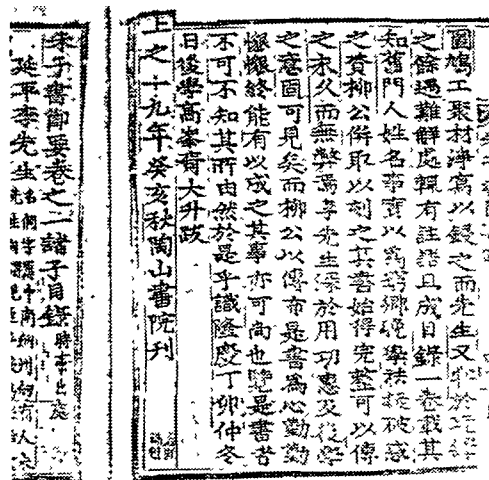 圖鳩工聚材淨寫以鋟之而先生又於
之餘遇難解處輒有註且成目錄一卷載其
知舊門人姓名事實以爲窮鄉晚學扶破惑
之資柳公併取以刻之其書始得完整可以傳
之永久而無弊焉李先生深於用功惠及後學
之意固可見矣而柳公以傳布是書爲心勤勤
懇懇終能有以成之其事亦可尚也覽是書者
不可不知其所由然於是乎識隆慶丁卯仲冬
日後學高峯奇大升跋
上之十九年癸亥秋陶山書院刊
朱子書節要卷之二諸子目錄 時事出處
延平李先生 名侗字中南州人